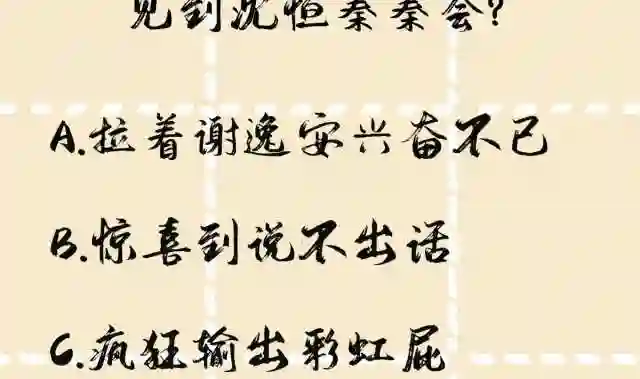 见到沈恒秦秦会?
A.拉着谢逸安兴奋不已
B.惊喜到说不出话
C.疯狂输出彩虹屁